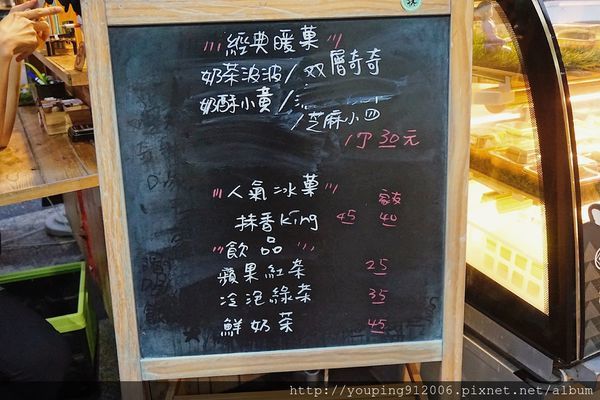 經典暖菓
奶茶波波/双層奇奇
奶酥小黃/
/芝麻小四
/P 30元
人氣冰菓
抹香King 45 40
飲品
蘋果紅茶 25
冷泡綠茶 35
鮮奶茶 45
http://youping912006.pixnet.net/album